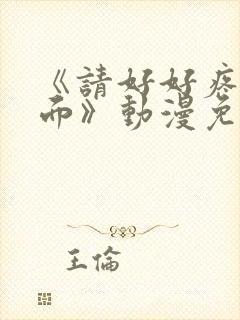 《請好好疼
而》動漫免
王倫